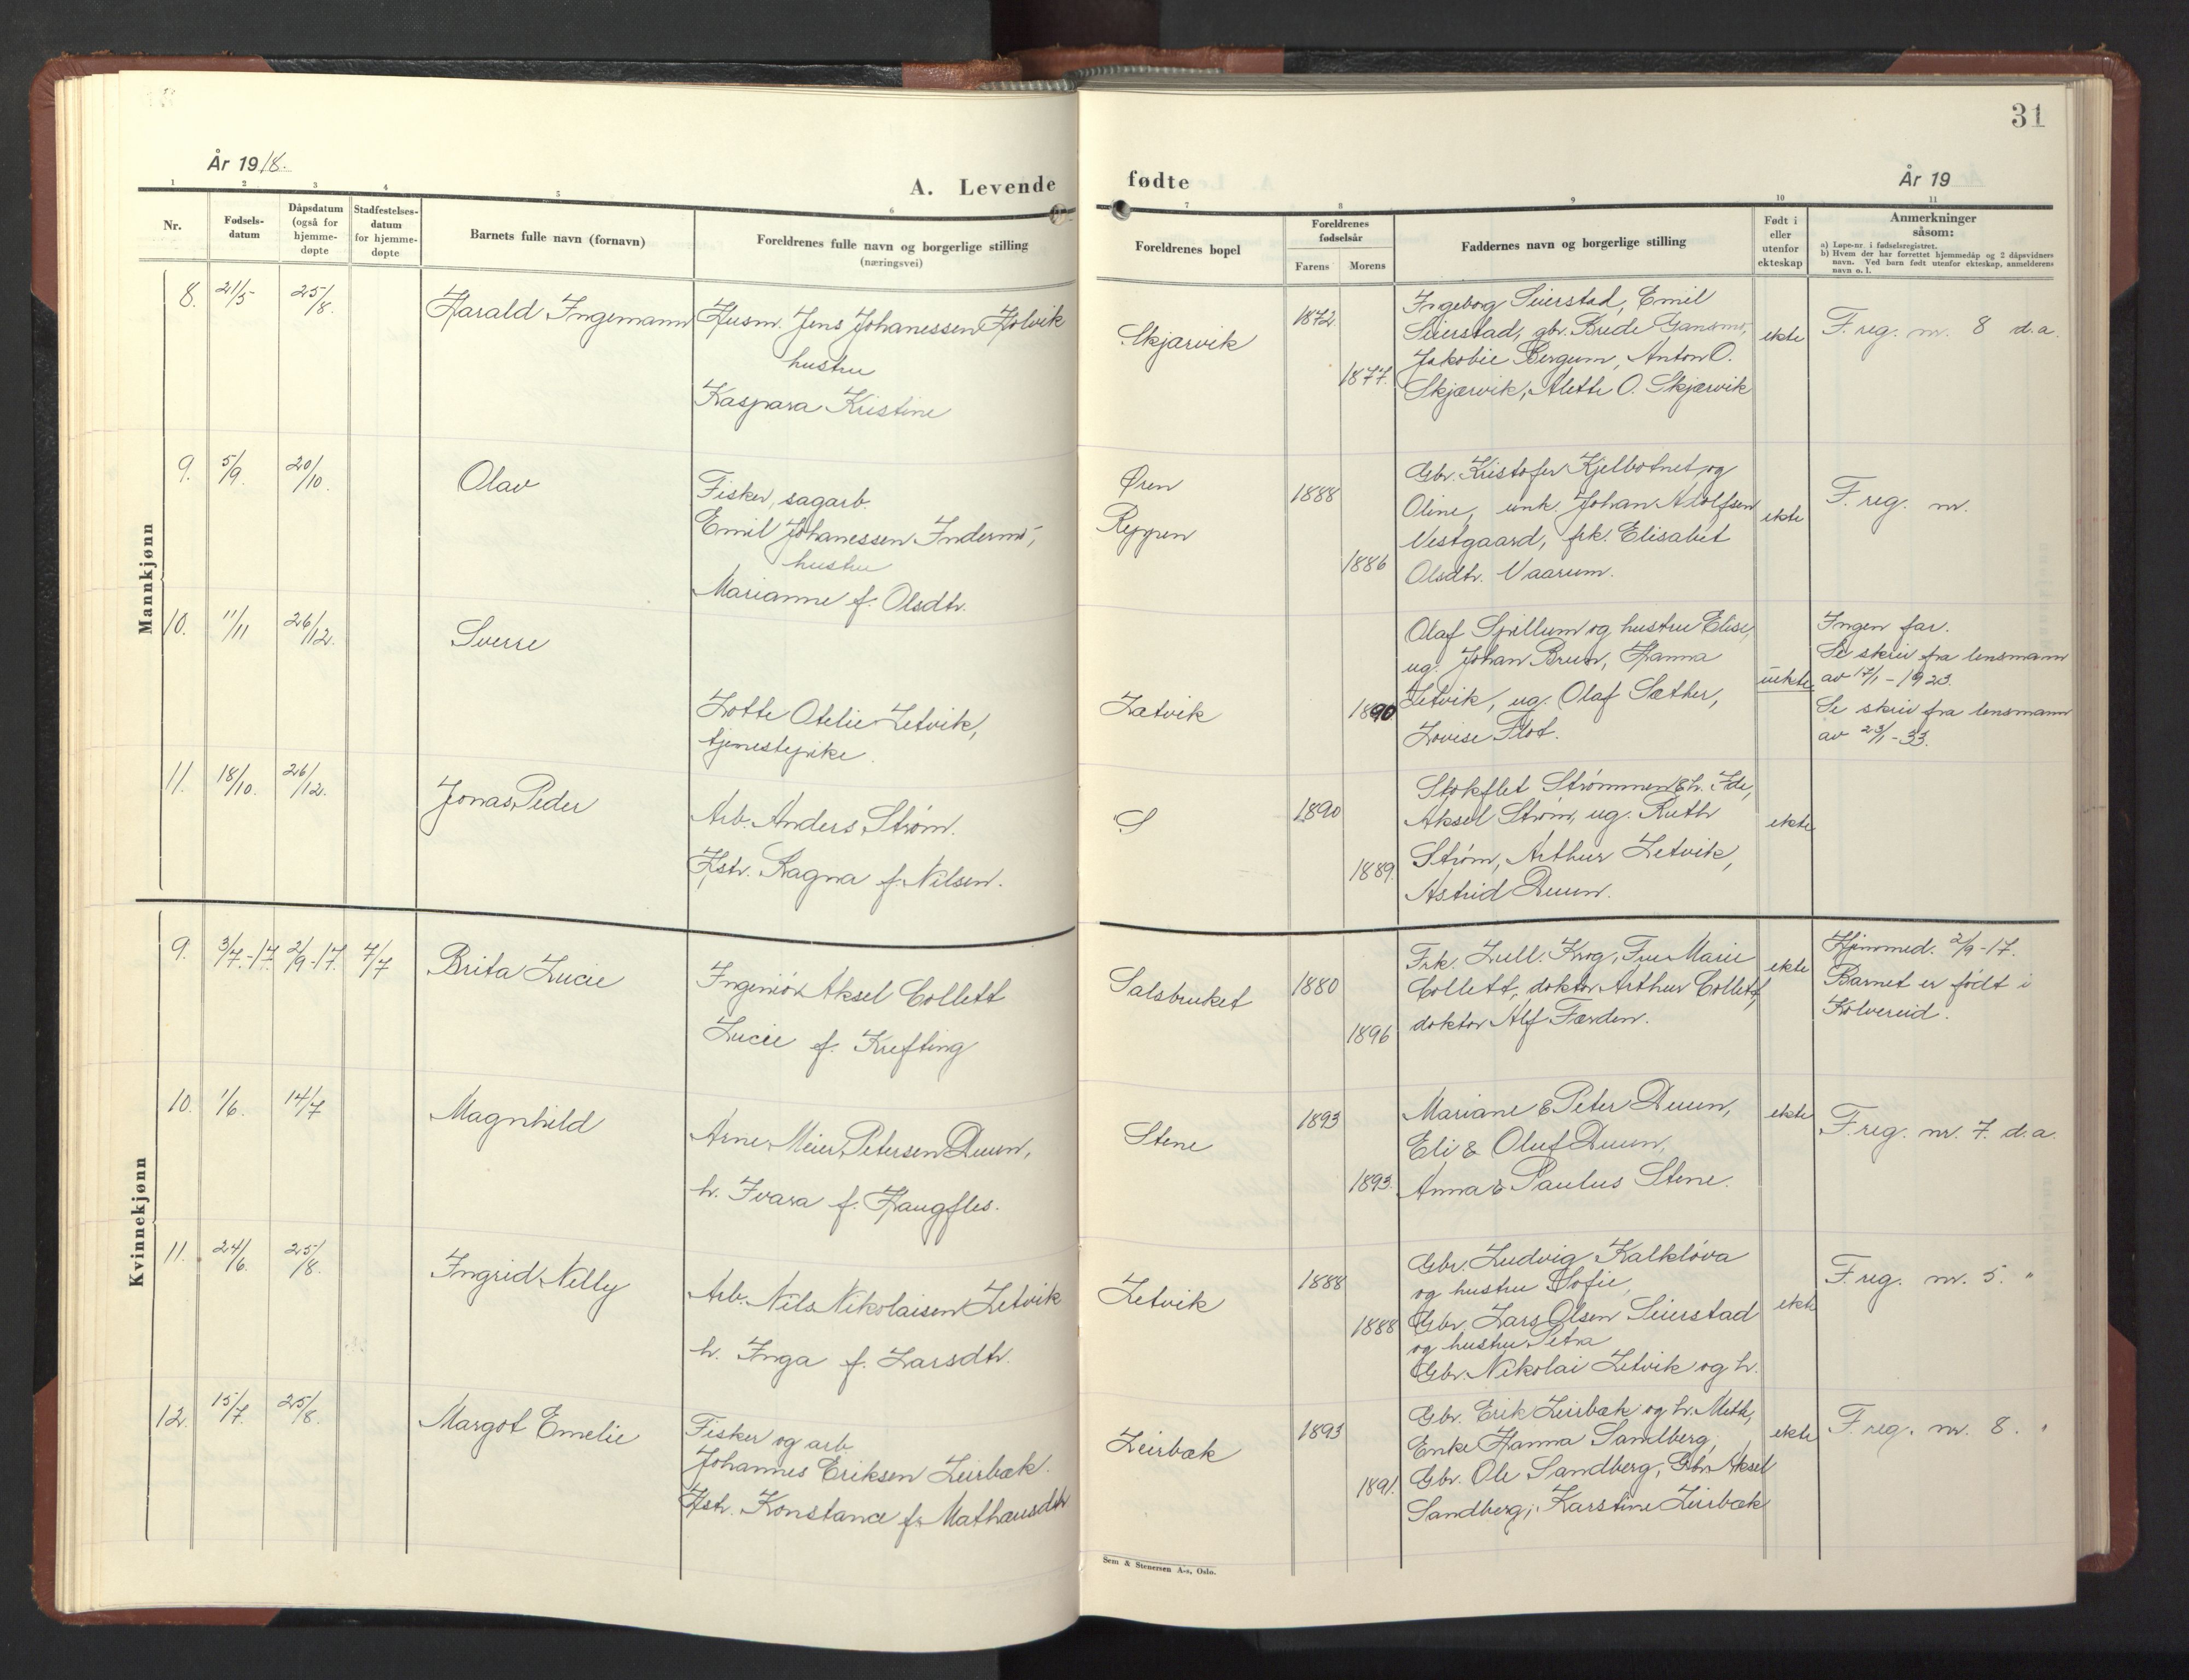 31
År 1918.
A. Levende
fødte
År 19
1 2 3 4 5 6 7 8 9 10 11
Nr.
Fødsels-
datum
Dåpsdatum
(også for
hjemme-
døpte
Stadfestelses-
datum
for hjemme-
døpte
Barnets fulle navn (fornavn)
Foreldrenes fulle navn og borgerlige stilling
(næringsvei)
Foreldrenes bopel
Foreldrenes
fødselsår
Farens Morens
Faddernes navn og borgerlige stilling
Født i
eller
utenfor
ekteskap
Anmerkninger
såsom:
a) Løpe-nr. i fødselsregistret.
b) Hvem der har forrettet hjemmedåp og 2 dåpsvidners
navn. Ved barn født utenfor ekteskap, anmelderens
navn o. l.
Mannkjønn
8. 21/5 25/8. Harald Ingemann
Husm. Jens Johanessen Holvik
hustru
Kaspara Kristine
Skjærvik
1872
1877.
Ingeborg Seierstad, Emil
Seierstad, gbr. Brede Gansmo,
Jakobie Bergum, Anton O.
Skjærvik, Alette O. Skjærvik
ekte
F. reg. nr. 8 d.a.
9. 5/9. 20/10. Olav
Fisker, sagarb.
Emil Johanessen Indermo,
hustru
Marianne f. Olsdtr.
Øren
Reppen
1888
1886
Gbr. Kristofer Kjelbotnet og
Oline, unk. Johan Adolfsen
Vestgaard, frk. Elisabet
Olsdtr. Vaarum.
ekte
F. reg. nr.
10. 11/11 26/12. Sverre
Lotte Otelie Letvik,
tjenestepike.
Lætvik
1890
Olaf Spillum og hustru Elise,
ug. Johan Brun, Hanna
Letvik, ug. Olaf Sæther,
Lovise Flot.
uekte
Ingen far.
Se skriv fra lensmann
av 17/1 - 1923.
Se skriv fra lensmann
av 23/1 - 33.
11. 18/10. 26/12. Jonas Peder
Arb. Anders Strøm.
Hstr. Ragna f. Nilsen.
S
1890
1889.
Stokflet Strømmen & h. Ida,
Aksel Strøm, ug. Ruth
Strøm, Arthur Letvik,
Astrid Duun.
ekte
Kvinnekjønn
9. 3/7.-17. 2/9-17. 7/7 Brita Lucie
Ingeniør Aksel Collett
Lucie f. Krefting
Salsbruket
1880
1896
Frk. Lull. Krog, Frue Marie
Collett, doktor Arthur Collett,
doktor Alf Færden.
ekte
Hjemmed. 2/9-17.
Barnet er født i
Kolvereid.
10. 1/6. 14/7 Magnhild
Arne Meier Petersen Duun,
h. Ivara f. Haugfles.
Stene
1893
1893.
Mariane & Peter Duun,
Eli & Oluf Duun,
Anna & Paulus Stene.
ekte
F. reg. nr. 7. d.a.
11. 24/6. 25/8. Ingrid Nelly
Arb. Nils Nikolaisen Letvik
h. Inga f. Larsdtr.
Letvik
1888
1888
Gbr. Ludvig Kalkløva
og hustru Sofie,
Gbr. Lars Olsen Seierstad
og hustru Petra
Gbr. Nikolai Letvik og h.
ekte
F. reg. nr. 5. "
12. 15/7. 25/8. Margot Emelie
Fisker og arb.
Johannes Eriksen Leirbæk.
Hstr. Konstance f. Mathæusdtr
Leirbæk
1893
1891.
Gbr. Erik Leirbæk og h. Meth,
Enke Hanna Sandberg,
Gbr. Ole Sandberg, Gbr. Aksel
Sandberg, Karstine Leirbæk
ekte
F. reg. nr. 8. "
Sem & Stenersen A-s, Oslo.